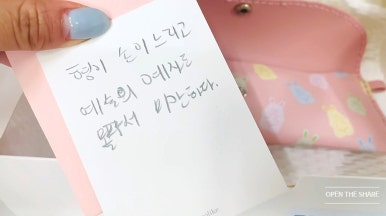 형이 손이 느리고
예술의 예자도
몰라서 미안하다.
OPEN THE SHARE